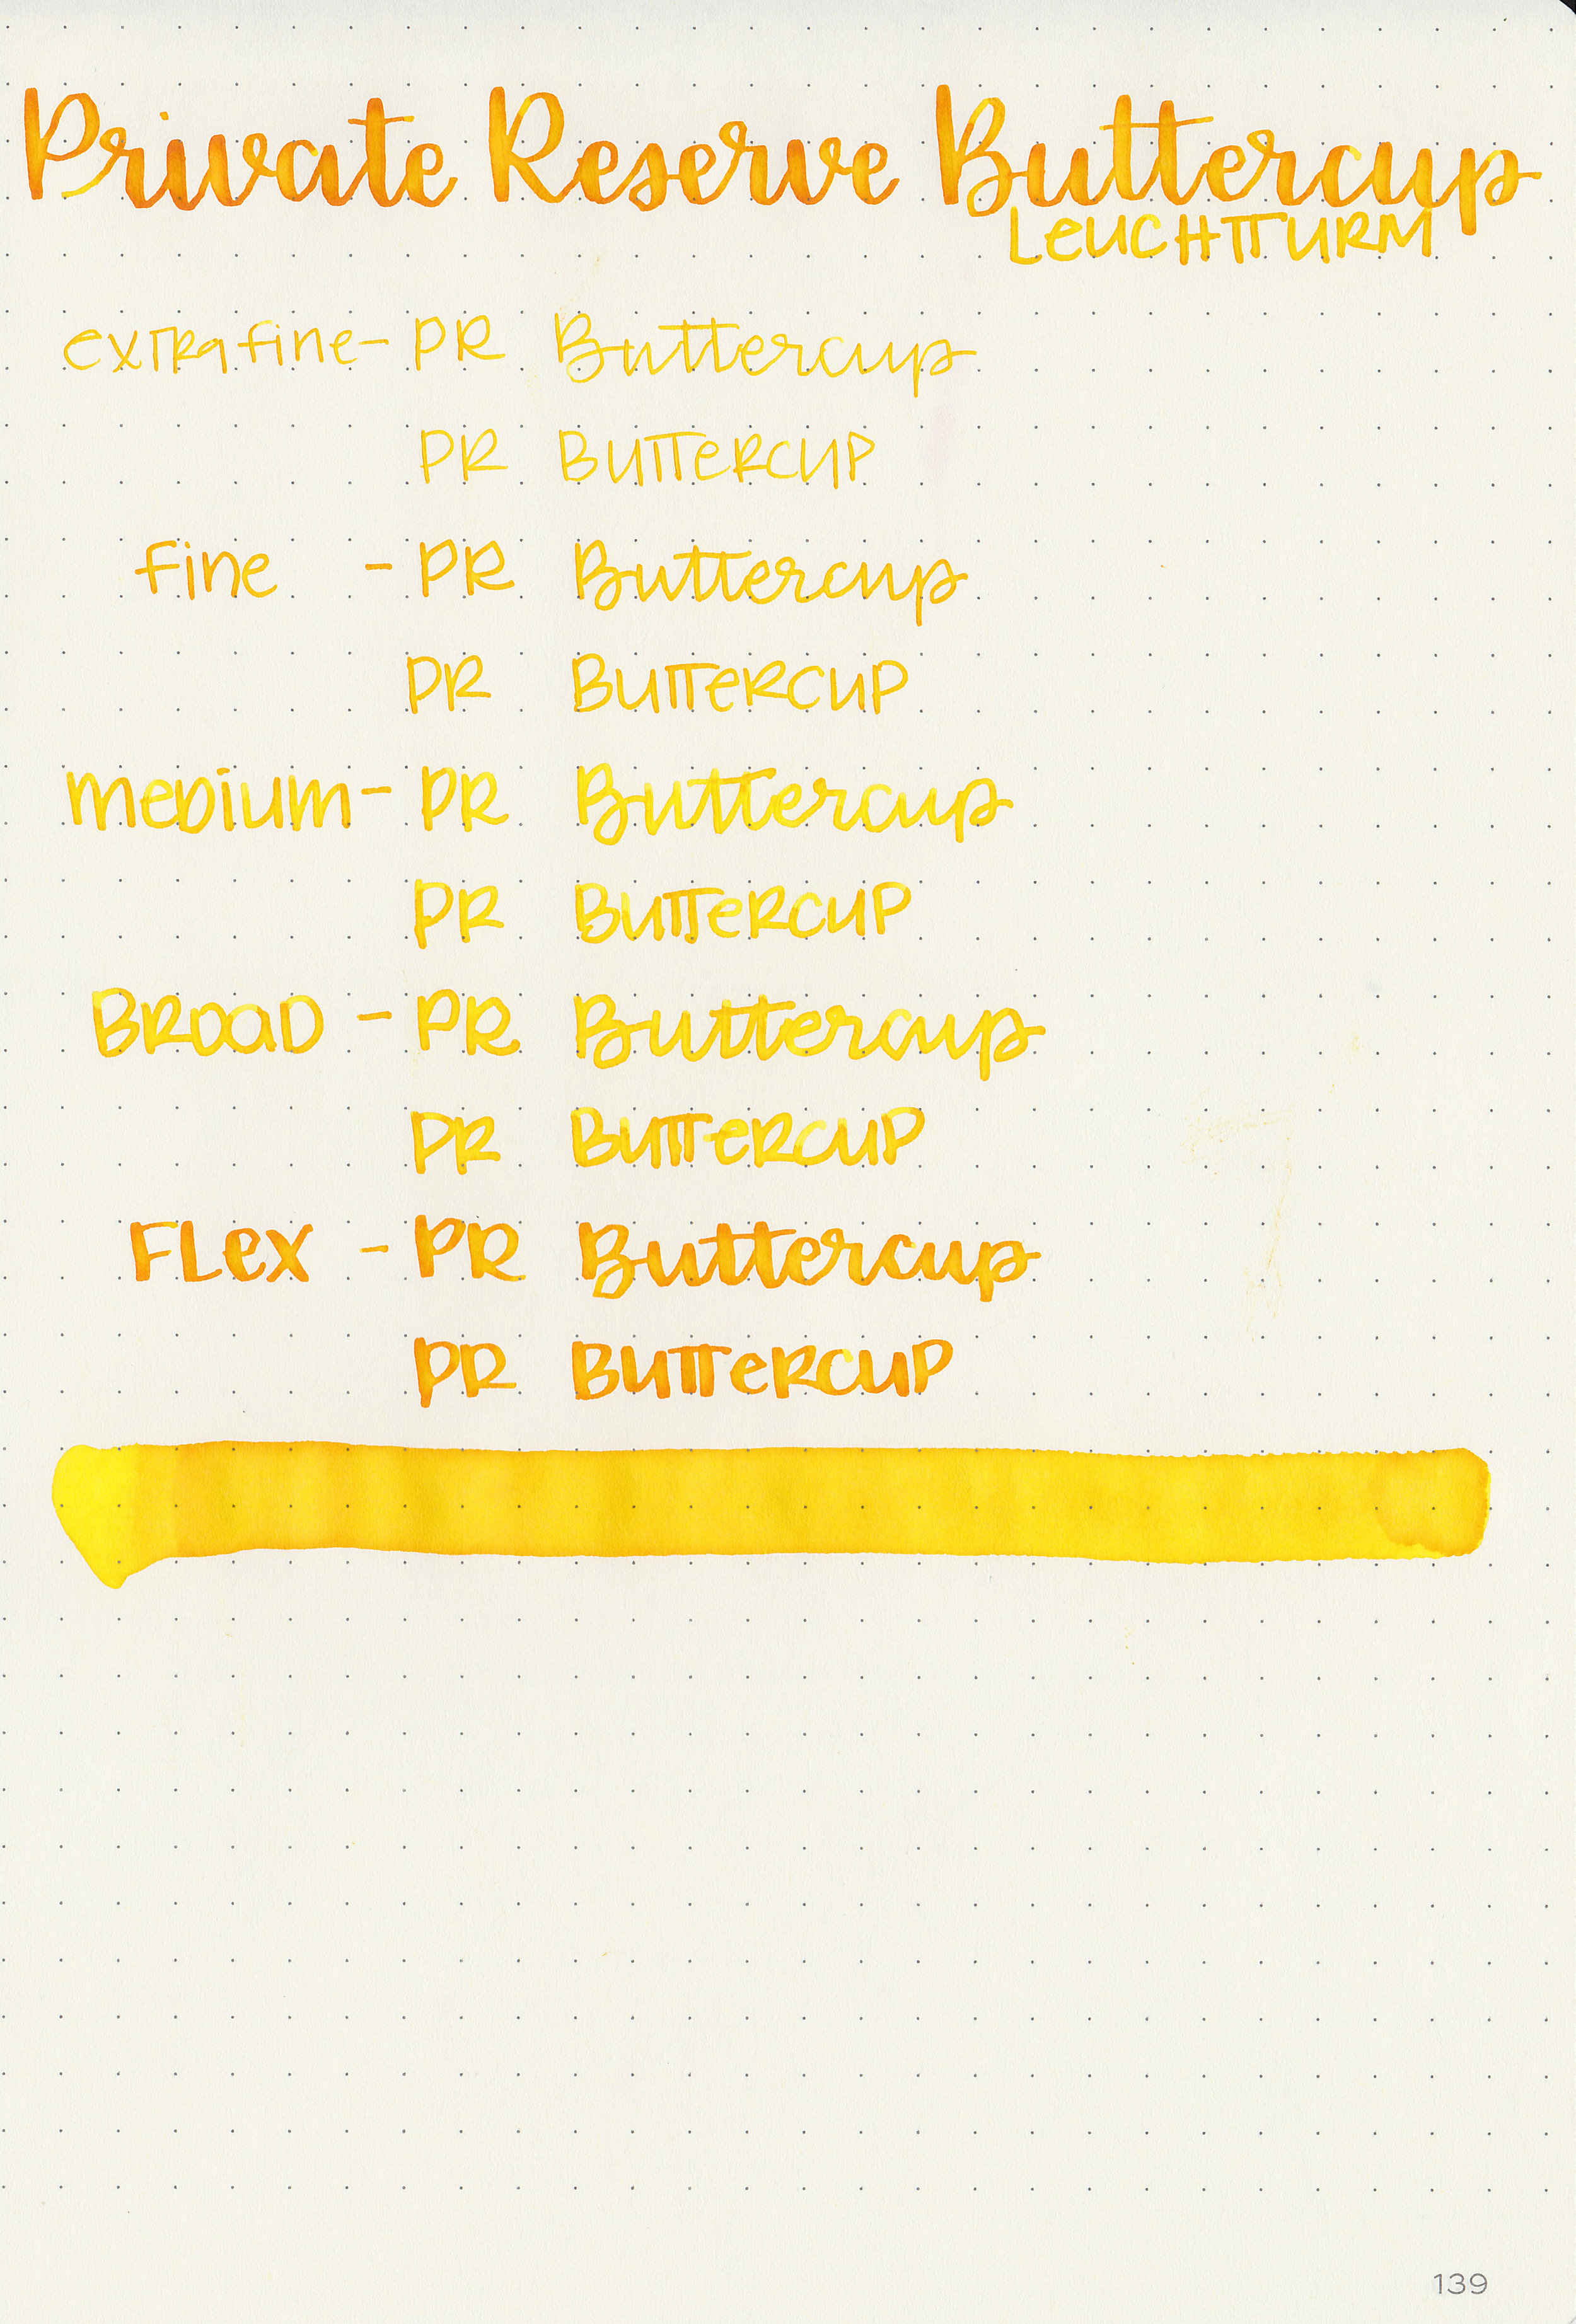 Private Reserve Buttercup
LeUCHTTURM
exTRa fine- PR Buttercup
PR BuTTeRCUP
fine - PR Buttercup
PR BuTTeRCUP
meDium- PR Buttercup
PR BuTTeRCUP
BRoaD - PR Buttercup
PR BuTTeRCUP
FLex - PR Buttercup
PR BuTTeRCUP
139